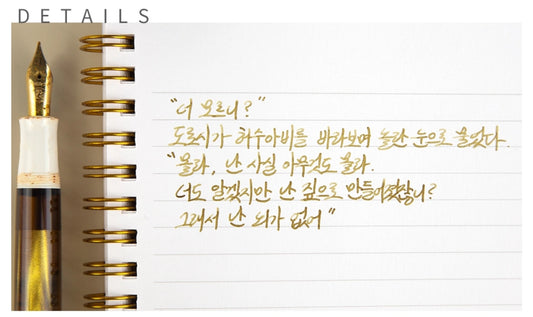 DETAILS
"너 모르니?"
도로시가 허수아비를 바라보며 놀란 눈으로 물었다.
"몰라, 난 사실 아무것도 몰라.
너도 알겠지만 난 짚으로 만들어졌잖니?
그래서 난 뇌가 없어"